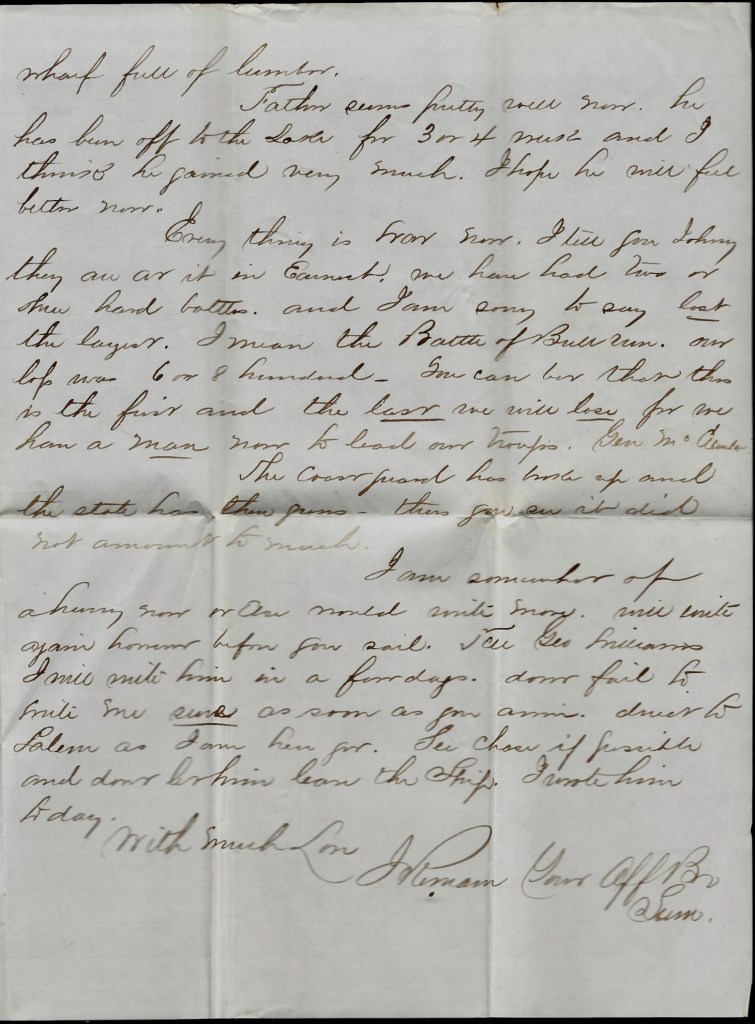 wharf full of lumber.
Father seems pretty well now. he
has been off to the Lake for 3 or 4 weeks and I
think he gained very much. I hope he will feel
better now.
Every thing is War now. I tell you Johny
they are at it in Earnest. we have had two or
three hard battles. and I am sorry to say lost
the largest. I mean the Battle of Bull run. our
loss was 6 or 8 hundred - You can bet that this
is the first and the last we will lose for we
have a man now to lead our troops. Gen McClellan
The Coast guard has broke up and
the state has their guns - thus you see it did
not amount to much.
I am somewhat of
a hurry now or Else would write more. will write
again however before you sail. Tell Geo Williams
I will write him in a few days. dont fail to
write me sure as soon as you arrive. direct to
Salem as I am here yet. See Chase if possible
and dont let him leave the Ship. I wrote him
to day.
With much Love
I Remain Your Aff Bro
Sum.